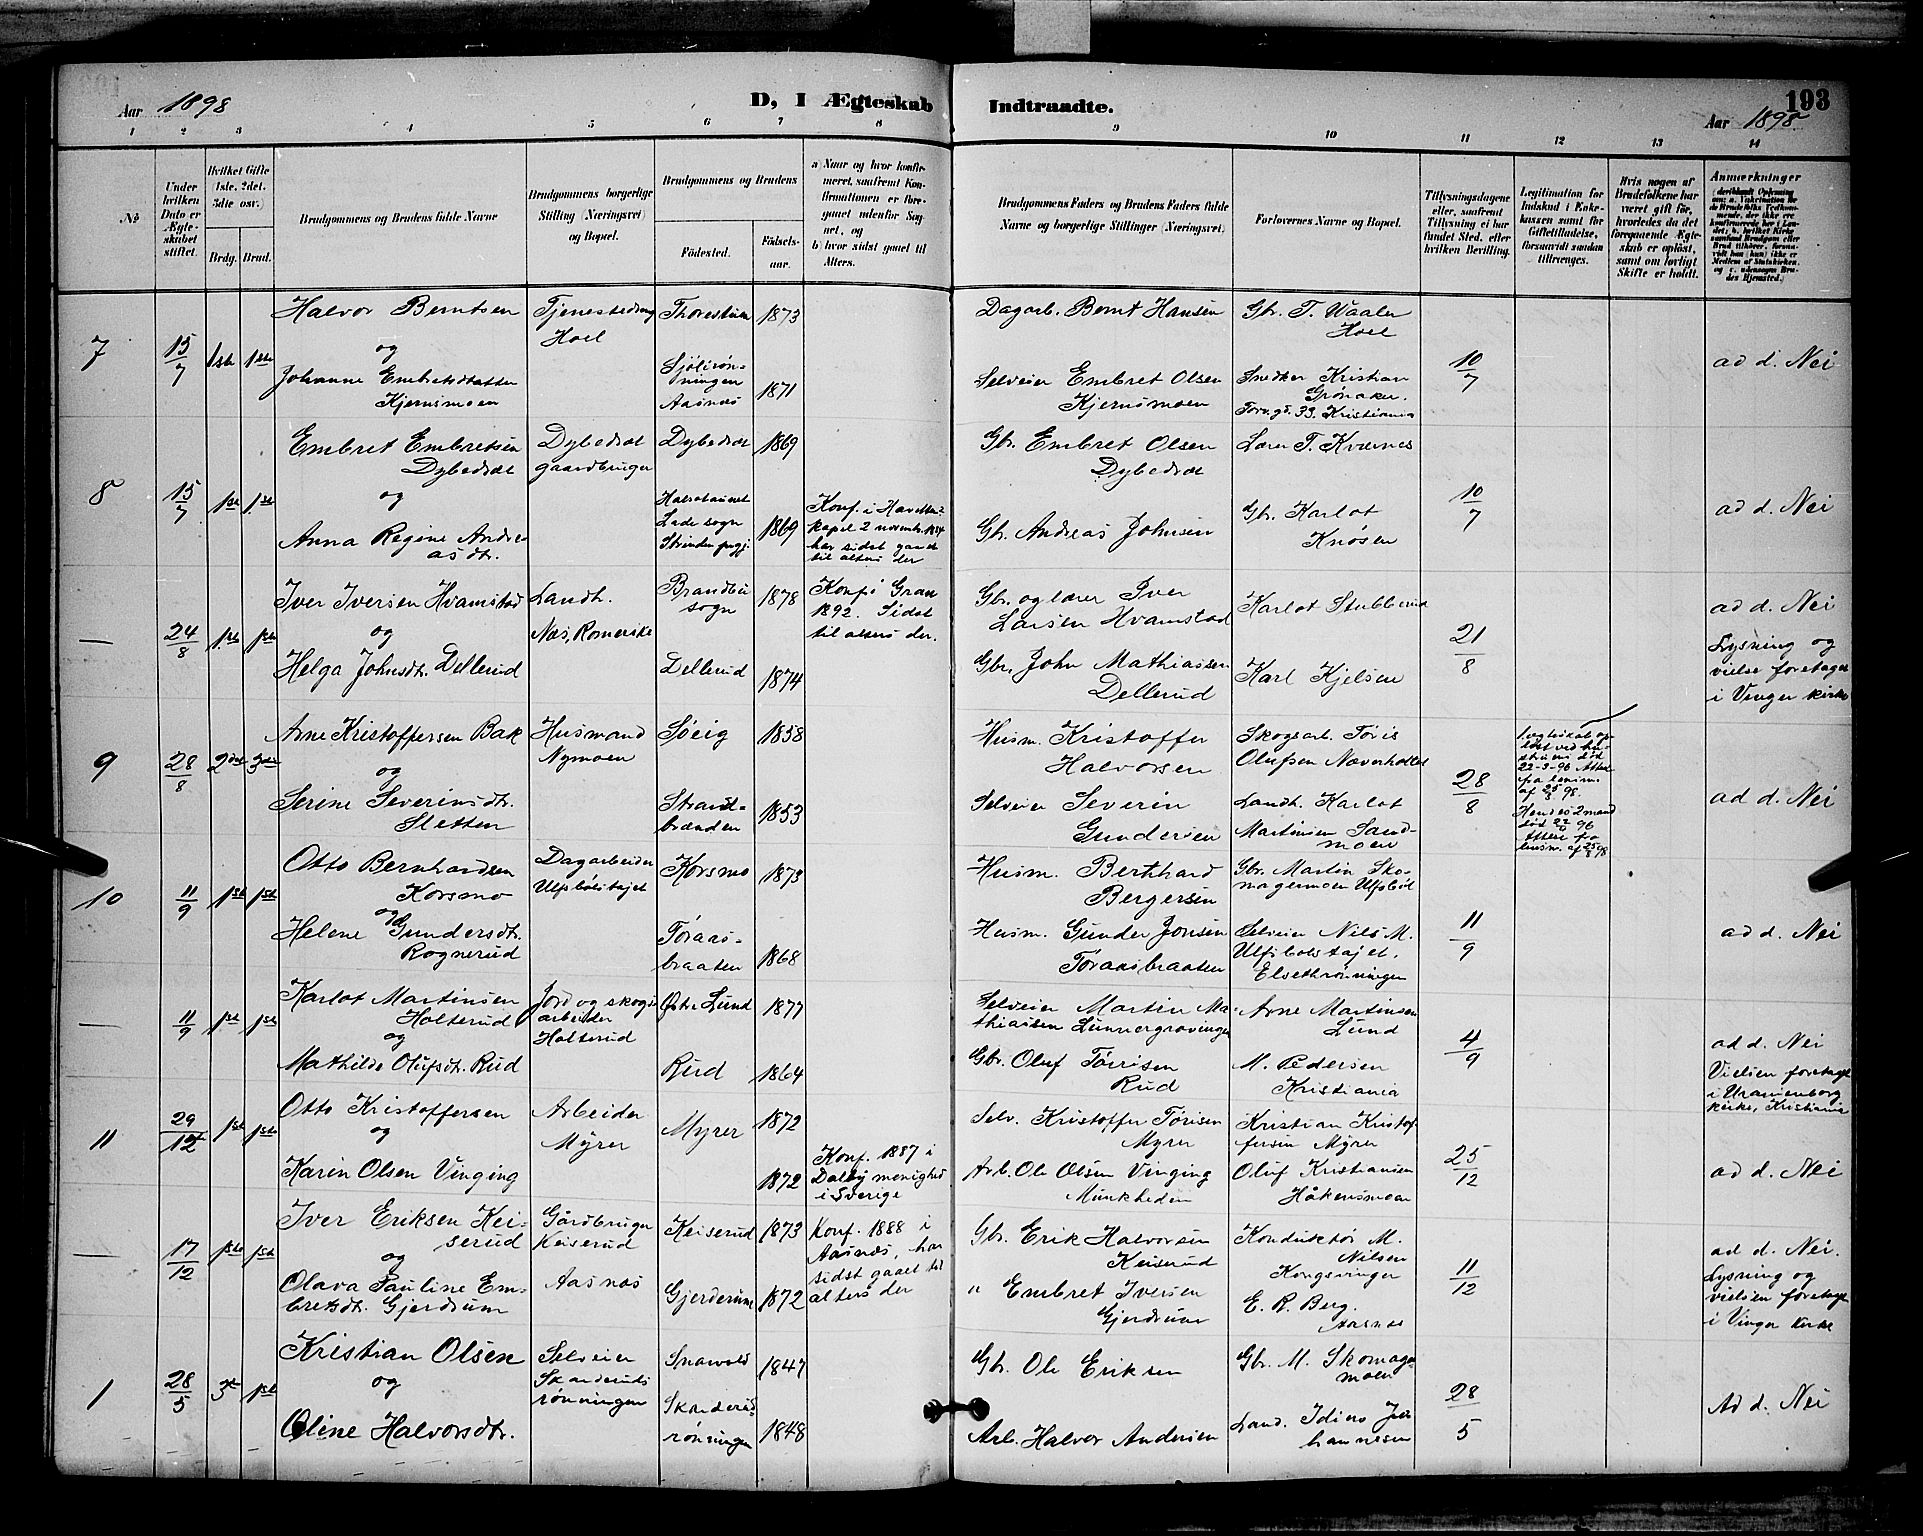 Aar 1898
D, I Ægteskab Indtraadte.
193
Aar 1898
1 2 3 4 5 6 7 8 9 10 11 12 13 14
No
Under hvilken Dato er Ægteskabet stiftet.
Hvilket Gifte 1ste, 2det, 3die osv.)
Brdg. Brud.
Brudgommens og Brudens fulde Navne
Brudgommens borgerlige Stilling (Næringsvei) og Bopæl.
Brudgommens og Brudens
Fødested.
Fødselsaar.
a) Naar og hvor konfirmeret, saafremt Konfirmationen er foregaaet udenfor Sognet, og
b) hvor sidst gaaet til Alters.
Brudgommens Faders og Brudens Faders fulde Navne og borgerlige Stillinger (Næringsvei).
Forlovernes Navne og Bopæl.
Tillysningsdagene eller, saafremt Tillysning ei har fundet Sted, efter hvilken Bevilling.
Legitimation for Indskud i Enkekassen samt for Giftetilladelse, forsaavidt saadan tiltrænges.
Hvis nogen af Brudefolkene har været gift før, hvorledes da det foregaaende Ægteskab er opløst, samt om lovligt Skifte er holdt.
Anmærkninger
7 15/7 1ste 1ste
Halvor Berntsen
og
Johanne Embretsdatter
Kjernsmoen
Tjenestedreng
Hoel
Thorestuen 1873
Sjölirönningen
Aasnæs 1871
Dagarb. Bernt Hansen
Selveier Embret Olsen
Kjernsmoen
Gbr. T. Waaler
Hoel
Snedker Kristian
Grönaker.
Torvgd. 33. Kristiania
10/7
ad d. Nei
8 15/7 1ste 1ste
Embret Embretsen
Dybedræt
og
Anna Regine Andreasdtr.
Dybedræt
gaardbruger
Dybedræt 1869
Lade sogn
Strinden prgj. 1869
til alters der
Gbr. Embret Olsen
Dybedræt
Gb. Andreas Johnsen
Lærer T. Kværnes
Gb. Karlot
Knösen
10/7
ad d. Nei
— 24/8 1ste 1ste
Iver Iversen Hvamstad
og
Helga Johnsdtr. Dellerud
Landh.
Næs, Romerike
Brandbu
sogn 1878
Dellerud 1874
Konf. i Gran
1892. Sidst
til alters der.
Gbr. og lærer Iver
Larsen Hvamstad
Gbr. John Mathiassen
Dellerud
Karlot Stubberud
Karl Kjelsen
21/8
ad d. Nei
Lysning og
vielse foretaget
i Vinger kirke
9 28/8 2det 3die
Arne Kristoffersen Bak
og
Serine Severinsdtr.
Sletten
Husmand
Nymoen
Söeig 1858
Strandbrænden 1853
Husm. Kristoffer
Halvorsen
Selveier Severin
Gundersen
Skogsarb. Töris
Olufsen Næverholtet
Landh. Karlot
Martinsen Sandmoen
28/8
1. egteskab opløst ved hustruens død
22-3-96 Attest
fra lensm.
af 25/8 98.
Hendes 2 mand
død 22/6 96
Attest fra
lensm. af 25/8 98
ad d. Nei
10 11/9 1ste 1ste
Otto Bernhardsen
Korsmo
og
Helene Gundersdtr.
Rognerud
Dagarbeider
Ulfsbölstajet
Korsmo 1873
Töraasbraaten 1868
Husm. Bernhard
Bergersen
Husm. Gunder Jonsen
Töraasbraaten
Gbr. Martin Skomagermoen Ulfsböl
Selveier Nils M.
Ulfsbolstajet.
Elsettrönningen
11/9
ad d. Nei
— 11/9 1ste 1ste
Karlot Martinsen
Holterud
og
Mathilde Olufsdtr. Rud
Jord og skogsarbeider
Holterud
Östre Lund 1877
Rud 1864
Selveier Martin Mathiassen Lunnergravingen
Gbr. Oluf Törrisen
Rud
Arne Martinsen
Lund
M. Pedersen
Kristiania
4/9
ad d. Nei
Vielsen foretaget
i Uranienborg
kirke, Kristiania
11 29/12 1ste 1ste
Otto Kristoffersen
og
Karin Olsen Vinging
Arbeider
Myrer
Myrer 1872
1872
Konf. 1887 i
Dalby menighed
i Sverige
Selv. Kristoffer Törisen
Myrer
Arb. Ole Olsen Vinging
Münkheden
Kristian Kristoffersen Myrer
Oluf Kristiansen
Håkensmoen
25/12
ad d. Nei
— 17/12 1ste 1ste
Iver Eriksen Keiserud
og
Olava Pauline Embretsdt. Gjerdrum
Gårdbruger
Keiserud
Aasnæs
Keiserud 1873
Gjerderum 1872
Konf. 1888 i
Aasnæs, har
sidst gaaet til
alters der
Gbr. Erik Halvorsen
Keiserud
" Embret Iversen
Gjerdrum
Konduktör M.
Nilsen
Kongsvinger
E. R. Berg.
Aasnæs
11/12
ad d. Nei.
Lysning og
vielsen foretaget
i Vinger kirke
1 28/5 3die 1ste
Kristian Olsen
og
Oline Halvorsdtr.
Selveier
Skanderudsrönningen
Snarvold 1847
Skanderudrönningen 1848
Gb. Ole Eriksen
Arb. Halvor Andersen
Gbr. M. Skomagermoen
Land. Idius Johannesen
28/5
Ad d. Nei